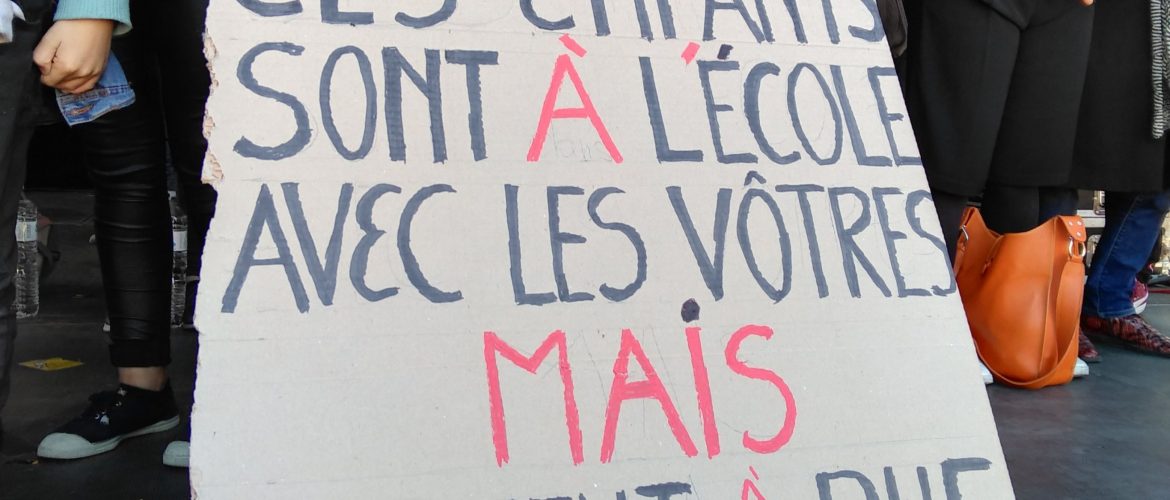 CES ENFANTS
SONT À L'ÉCOLE
AVEC LES VÔTRES
MAIS
À RUE